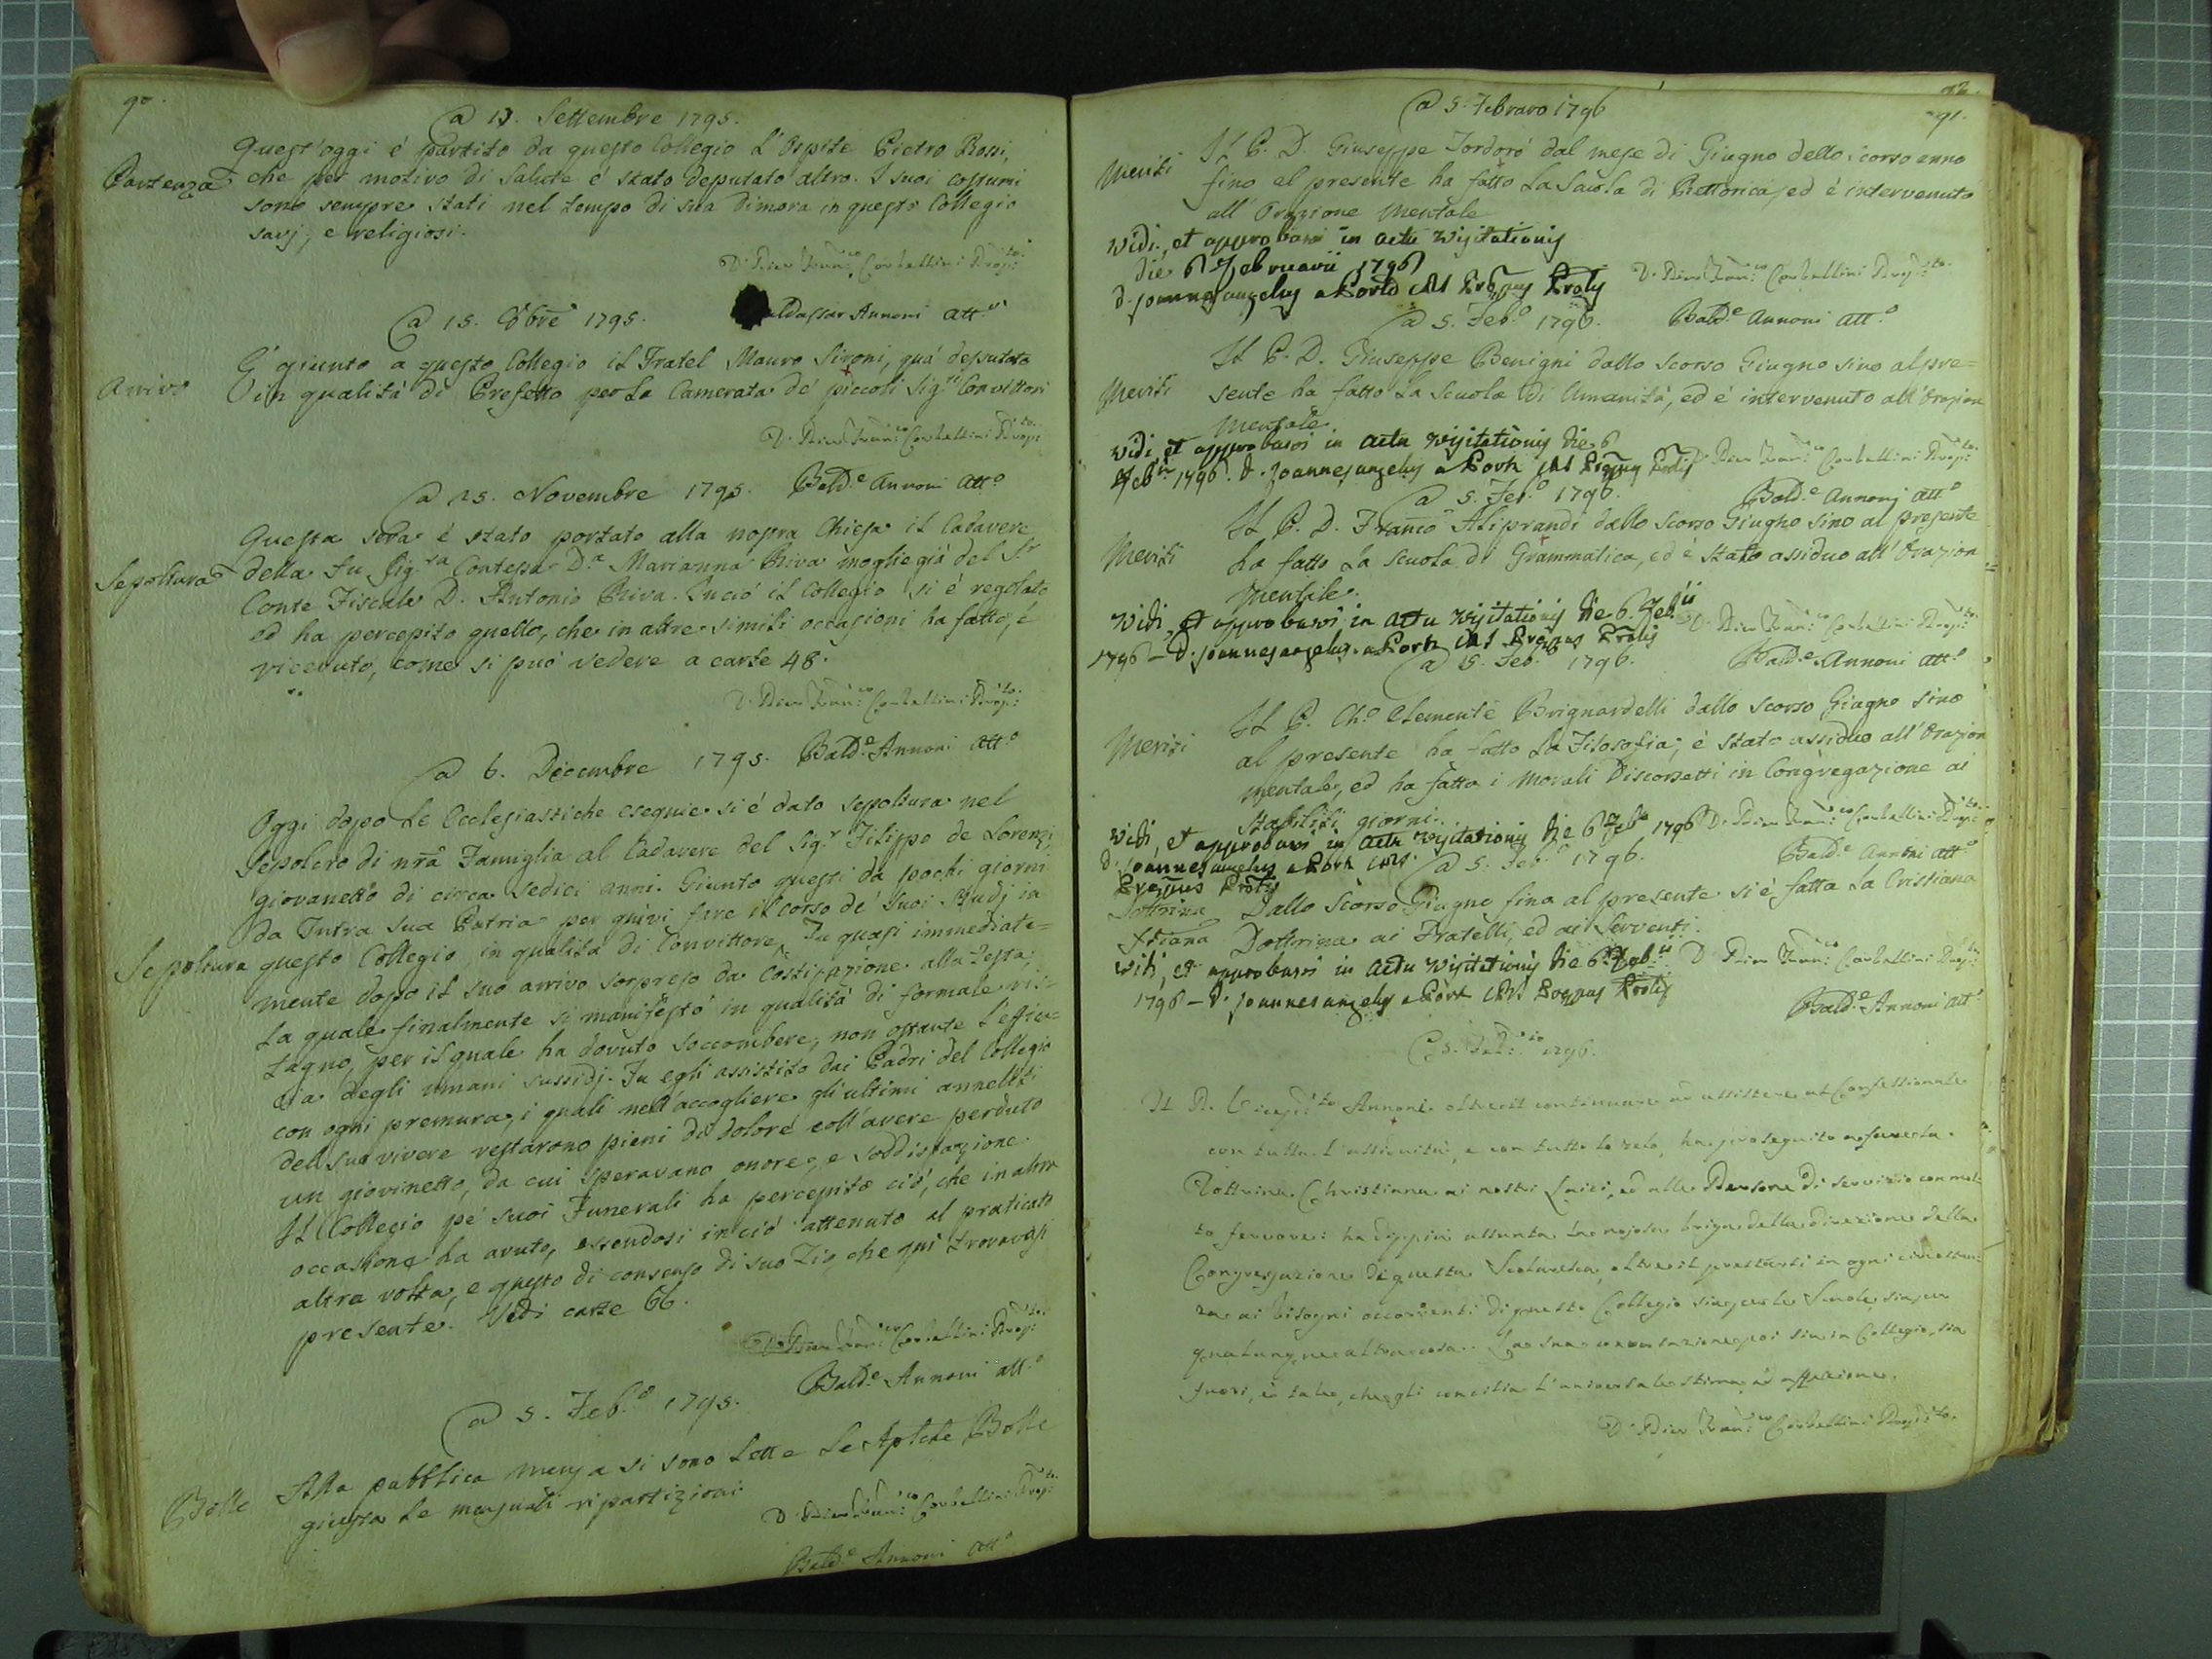 90.
a 13. Settembre 1795.
Quest'oggi é partito da questo Collegio L'Ospite Pietro Bossi,
Partenza che per motivo di Salute é stato deputato altro. I suoi costumi
sono sempre stati nel tempo di sua Dimora in questo Collegio
savj, e religiosi.
D. Pier Fran:co Corbellini Prop:to
Baldassar Annoni Att.o
a 15. 8bre 1795.
É giunto a questo Collegio il Fratel Mauro Sironi, quá deputato
Arrivo in qualitá di Prefetto per La Camerata de' piccoli Sig.ri Convittori
D. Pier Fran:co Corbellini Prop:to
a 25. Novembre 1795. Bald.e Annoni Att.o
Questa sera é stato portato alla nostra Chiesa il Cadavere
Sepoltura della fu Sig.ra Contessa D.a Marianna Riva moglie giá del S.r
Conte Fiscale D. Antonio Riva. In ció il Collegio si é regolato
ed ha percepito quello, che in altre simili occasioni ha fatto, é
ricevuto, come si puó vedere a carte 48.
D. Pier Fran:co Corbellini Prop:to
a 6. Decembre 1795. Bald.e Annoni Att.o
Oggi dopo Le Ecclesiastiche esequie si é dato sepoltura nel
Sepolcro di nra Famiglia al Cadavere del Sig.r Filippo de Lorenzi,
giovanetto di circa sedici anni. Giunto questi da pochi giorni
da Intra sua Patria per quivi fare il corso de' suoi Studj in
Sepoltura questo Collegio in qualitá di Convittore, Fu quasi immediata=
mente dopo il suo arrivo sorpreso da Costipazione alla testa,
La quale finalmente si manifestó in qualitá di formale ris=
tagno, per il quale ha dovuto soccombere, non ostante L'effica=
cia degli umani sussidj. Fu egli assistito dai Padri del Collegio
con ogni premura, i quali nell'accogliere gli ultimi anneliti
del suo vivere restarono pieni di dolore coll'avere perduto
un giovinetto, da cui speravano onore, e soddisfazione.
Il Collegio pe' suoi Funerali ha percepito ció, che in altre
occasione ha avuto, essendosi in ció attenuto al praticato
altra volta, e questo di consenso di suo Zio, che qui trovavasi
presente. Vedi carte 66.
D. Pier Fran:co Corbellini Prop:to
Bald.e Annoni Att.o
a 5. Feb.o 1795.
Alla pubblica mensa si sono Lette Le Aplche Bolle
Bolle giusta Le mensuali ripartizioni
D. Pier Fran:co Corbellini Prop:to
Bald.e Annoni Att.o
91.
a 5. Febraro 1796
Il P. D. Giuseppe Tordoró dal mese di Giugno dello scorso anno
Meriti fino al presente ha fatto La Scuola di Rettorica, ed é intervenuto
all'Orazione Mentale
Vidi, et approbavi in actu visitationis
die 6 Februarii 1796
D. Joannes angelus a Porta
D. Pier Fran:co Corbellini Prop:to
a 5. Feb.o 1796. Bald.e Annoni Att.o
Il P. D. Giuseppe Benigni dallo scorso Giugno sino al pre=
Meriti sente ha fatto La Scuola di Umanitá, ed é intervenuto all'Orazion
Mentale.
Vidi, et approbavi in actu visitationis die 6
Feb.ii 1796. D. Joannes angelus a Porta
D. Pier Fran:co Corbellini Prop:to
a 5. Feb.o 1796. Bald.e Annoni Att.o
Il P. D. Franco Aliprandi dallo Scorso Giugno sino al presente
Meriti ha fatto La Scuola di Grammatica, ed é stato assiduo all'Orazion
mentale.
Vidi, et approbavi in actu visitationis die 6. Feb.ii
1796 – D. Joannes angelus a Porta
D. Pier Fran:co Corbellini Prop:to
a 5. Feb.o 1796. Bald.e Annoni Att.o
Il P. Ch.o Clemente Brignardelli dallo scorso Giugno sino
Meriti al presente ha fatto La Filosofia; é stato assiduo all'Orazion
mentale, ed ha fatto i Morali Discorsetti in Congregazione ai
stabiliti giorni.
Vidi, et approbavi in actu visitationis die 6 Feb.ii 1796 D. Pier Fran:co Corbellini Prop:to
D. Joannes angelus a Porta
a 5. Feb.o 1796. Bald.e Annoni Att.o
Dottrina Dallo Scorso Giugno fino al presente si é fatta La Cristiana
Stiana Dottrina ai Fratelli, ed ai Serventi.
Vidi, et approbavi in actu visitationis die 6 Feb.ii D. Pier Fran:co Corbellini Prop:to
1796 – D. Joannes angelus a Porta
Bald.e Annoni Att.o
a 5. Feb:o 1796.
Il P. Vicep:to Annoni oltre il continuare ad assistere al Confessionale
con tutta l'assiduitá, e con tutto lo zelo, ha proseguito a fare la
Dottrina Christiana ai nostri Laici, ed alle Persone di servizio con mol
to fervore: ha dippiú assunta la nojosa briga della direzione della
Congregazione di questa Scolaresca, oltre il prestarsi in ogni circostan:
za ai bisogni occorrenti di questo Collegio sia per le Scuole, sia per
qualunque altra cosa. La sua conversazione poi sia in Collegio, sia
fuori, é tale, che gli concilia l'universale stima ed affezione.
D. Pier Fran:co Corbellini Prop:to